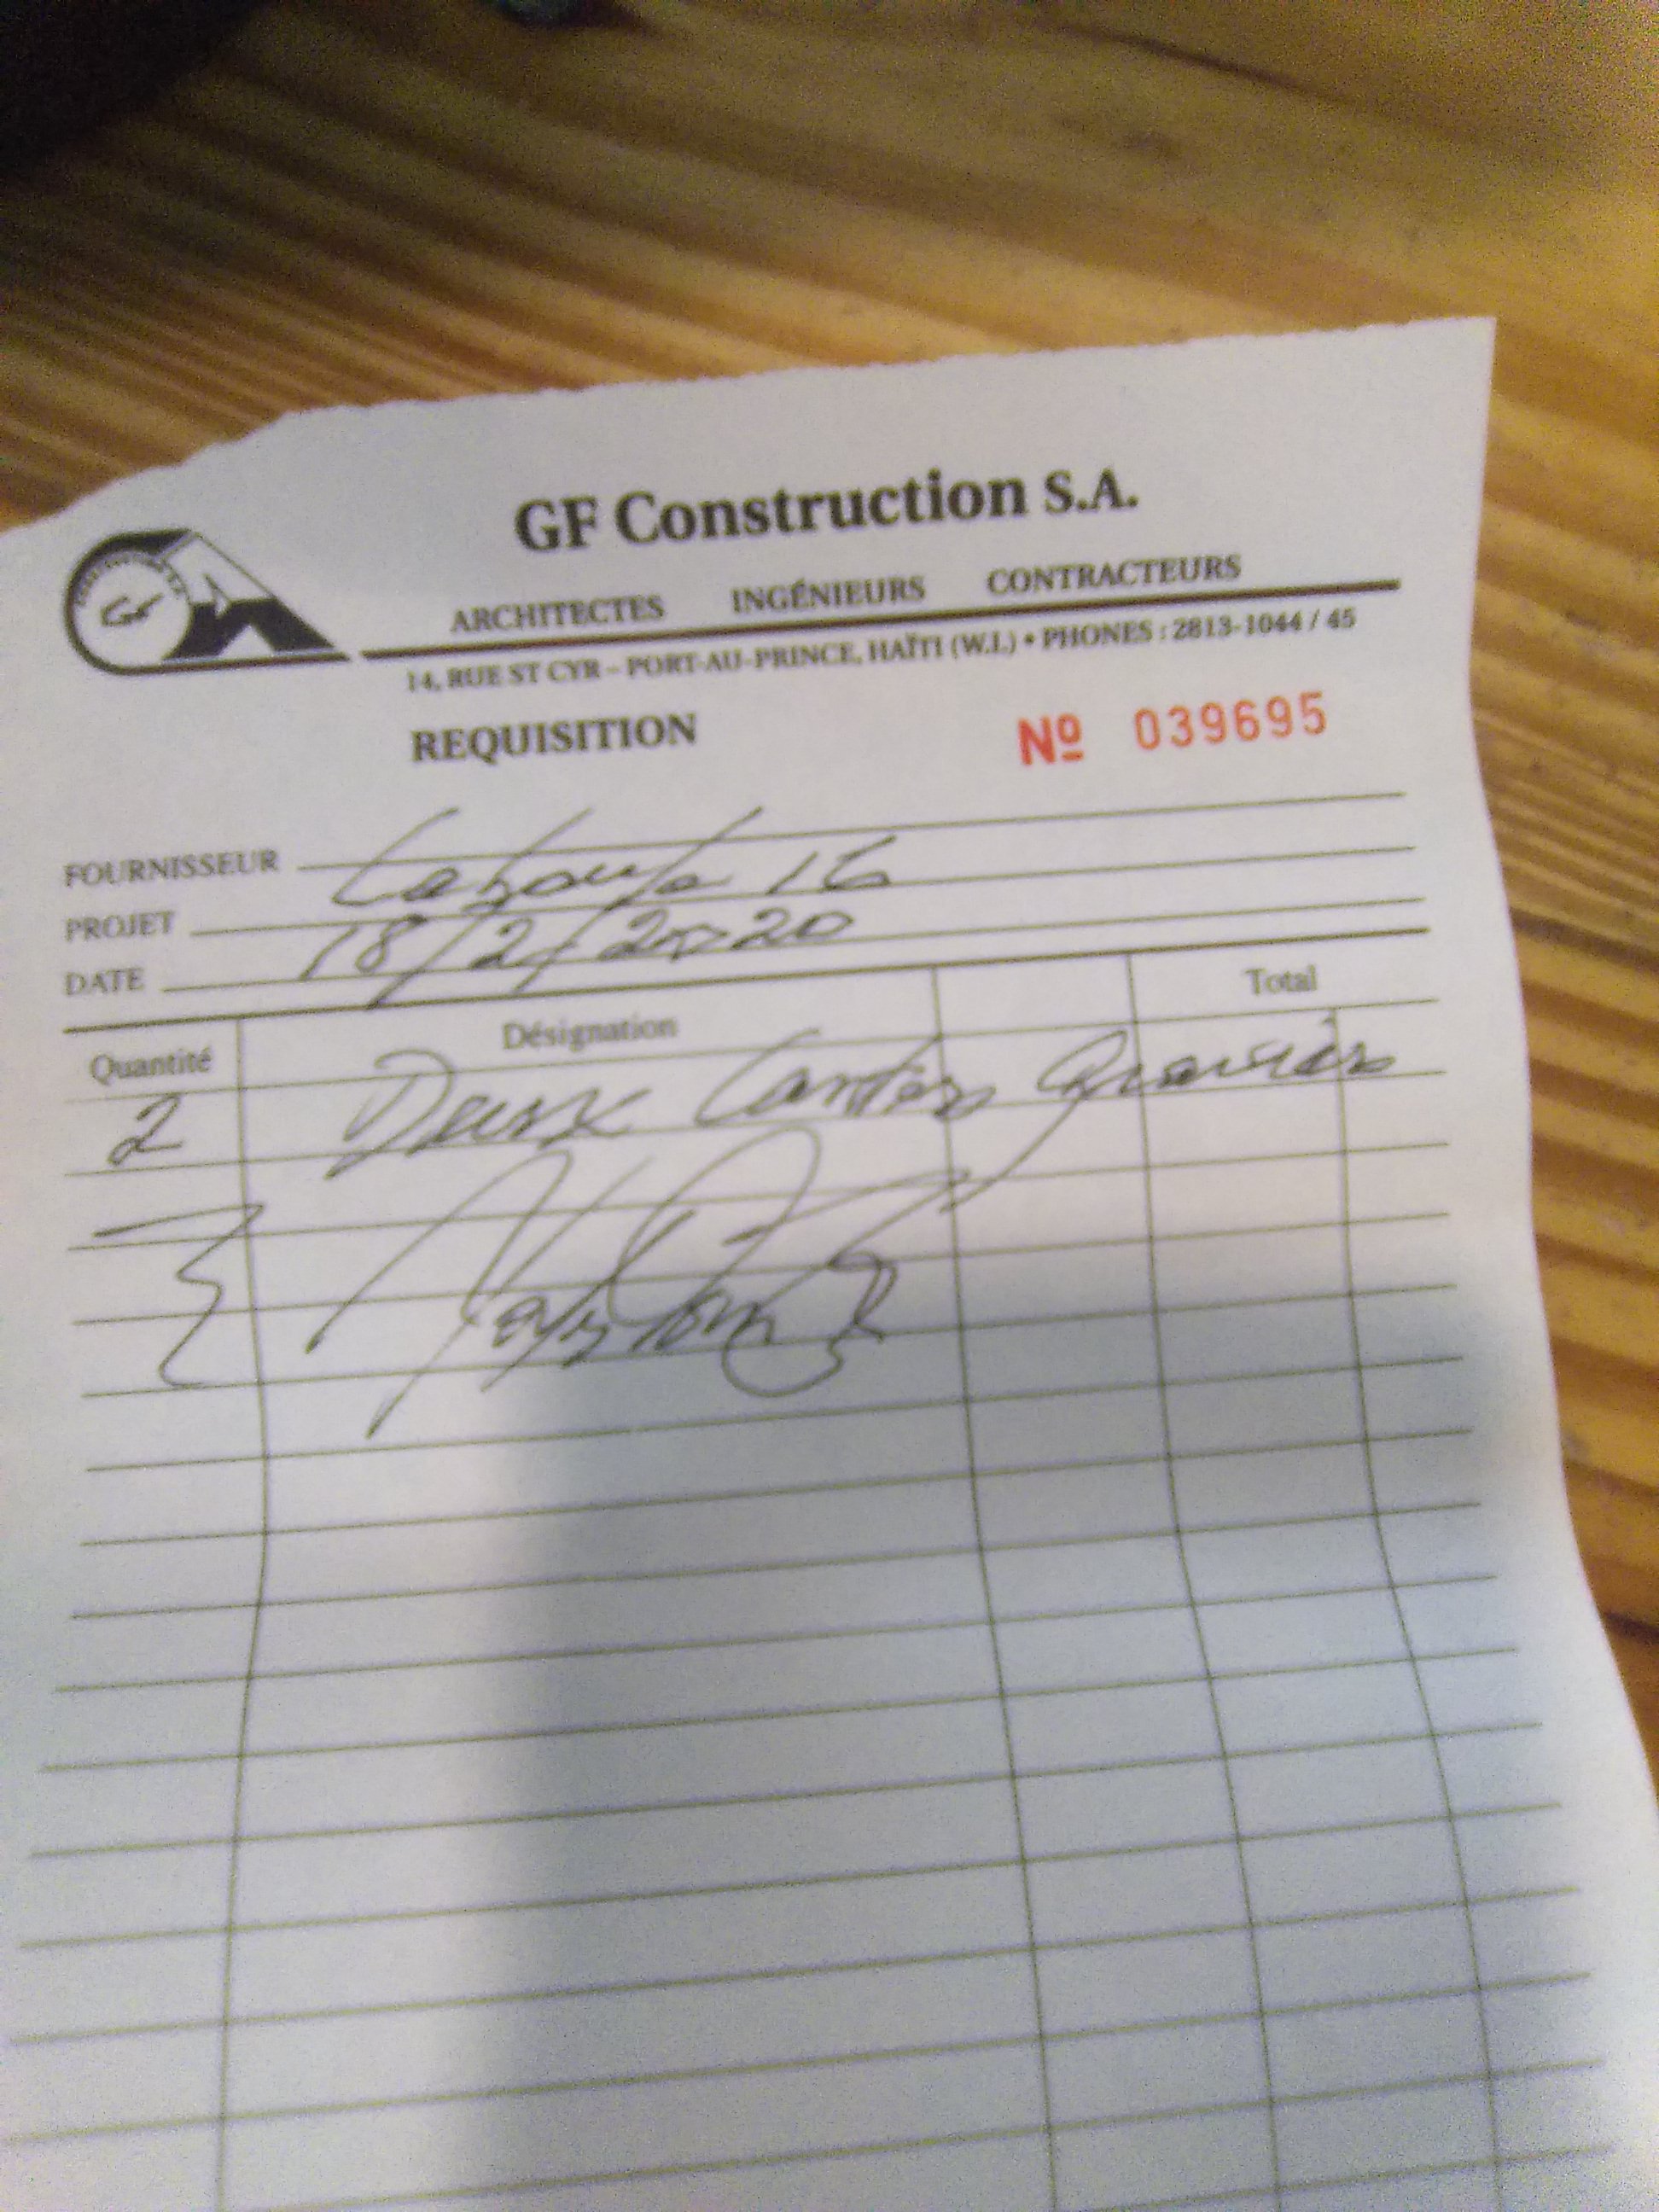 GF Construction S.A.
ARCHITECTES INGÉNIEURS CONTRACTEURS
14, RUE ST CYR – PORT-AU-PRINCE, HAÏTI (W.I.) • PHONES : 2813-1044 / 45
GF
REQUISITION Nº 039695
FOURNISSEUR
PROJET Laboule 16
DATE 18/2/2020
Quantité Désignation Total
2 Deux